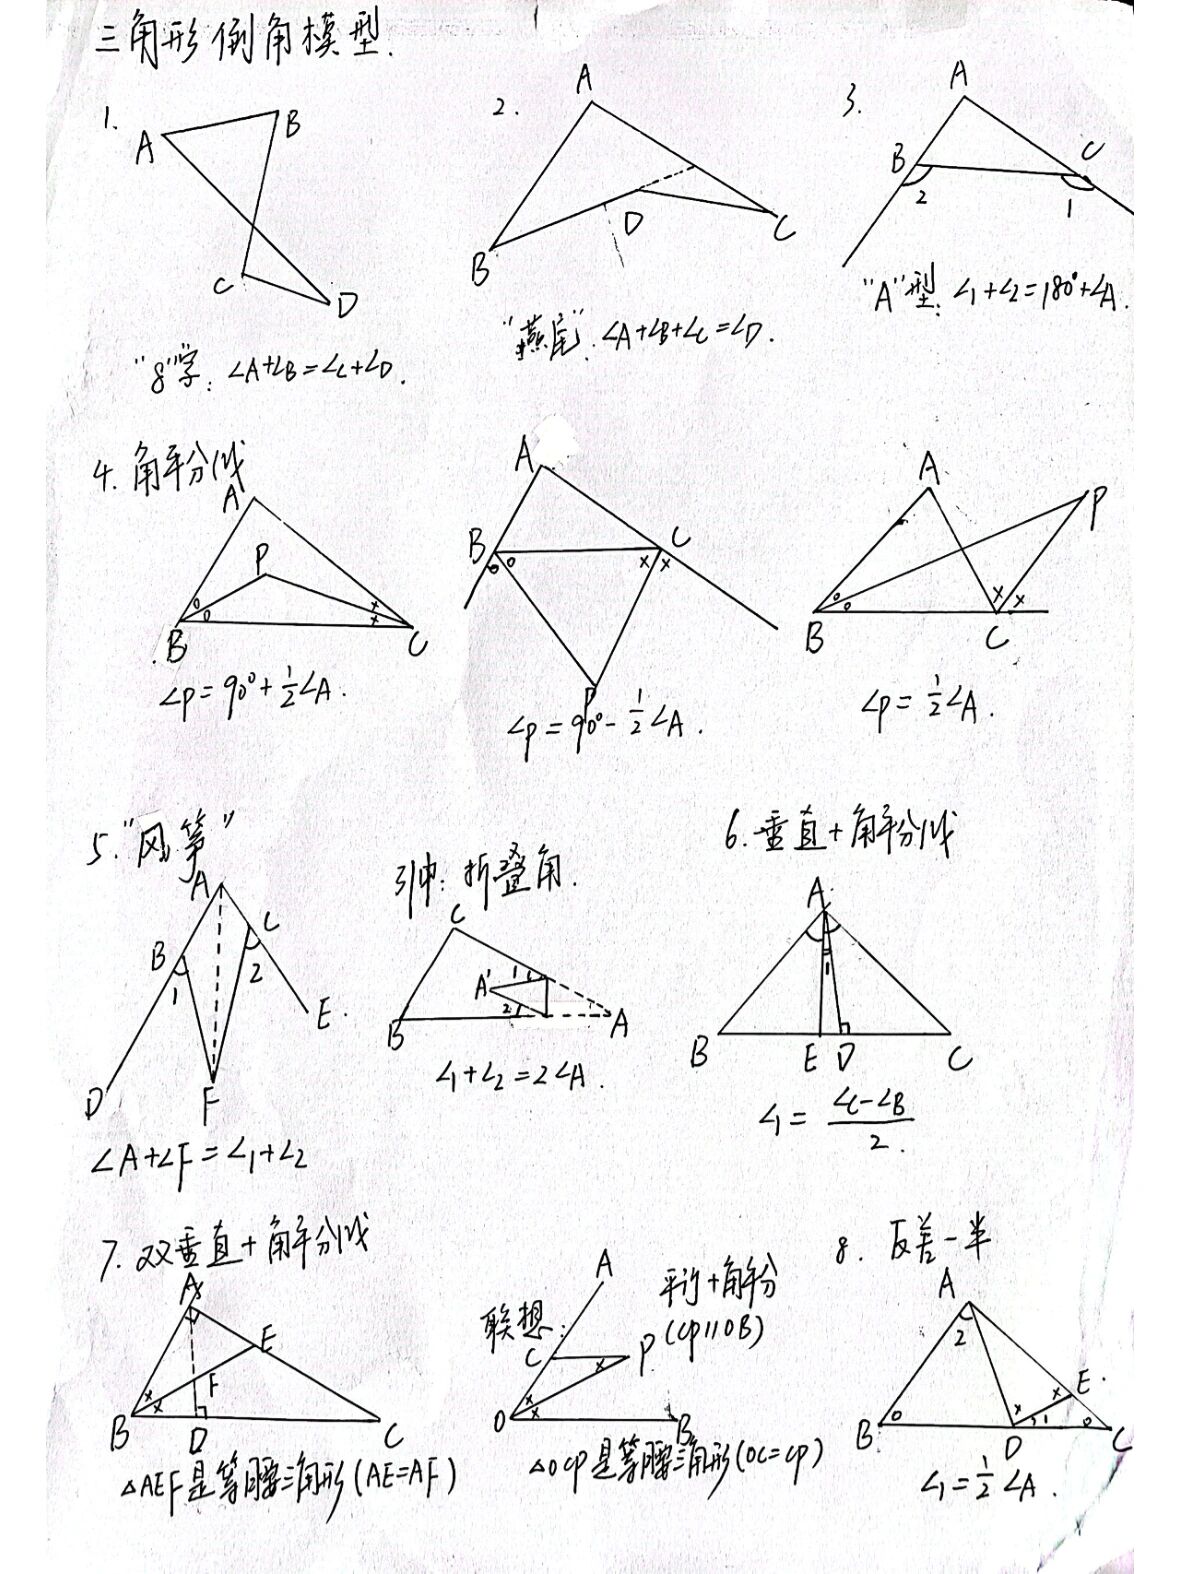 三角形倒角模型.
1.
A
B
C
D
"8"字: ∠A+∠B=∠C+∠D.
2.
A
B
D
C
"燕尾": ∠A+∠B+∠C=∠D.
3.
A
B
C
2
1
"A"型: ∠1+∠2=180°+∠A.
4. 角平分线
A
P
B
C
∠P=90°+1/2∠A.
A
B
C
P
∠P=90°-1/2∠A.
A
P
B
C
∠P=1/2∠A.
5. "风筝"
A
B
C
1
2
E.
D
F
∠A+∠F=∠1+∠2
引申: 折叠角.
C
A' 1
2
B
A
∠1+∠2=2∠A.
6. 垂直+角平分线
A
1
B
E D
C
∠1=(∠C-∠B)/2.
7. 双垂直+角平分线
A
E
F
B
D
C
△AEF是等腰三角形(AE=AF)
联想:
平行+角平分
(CP∥OB)
A
C
P
O
B
△OCP是等腰三角形(OC=CP)
8. 反差一半
A
2
E.
1
B
D
C
∠1=1/2∠A.